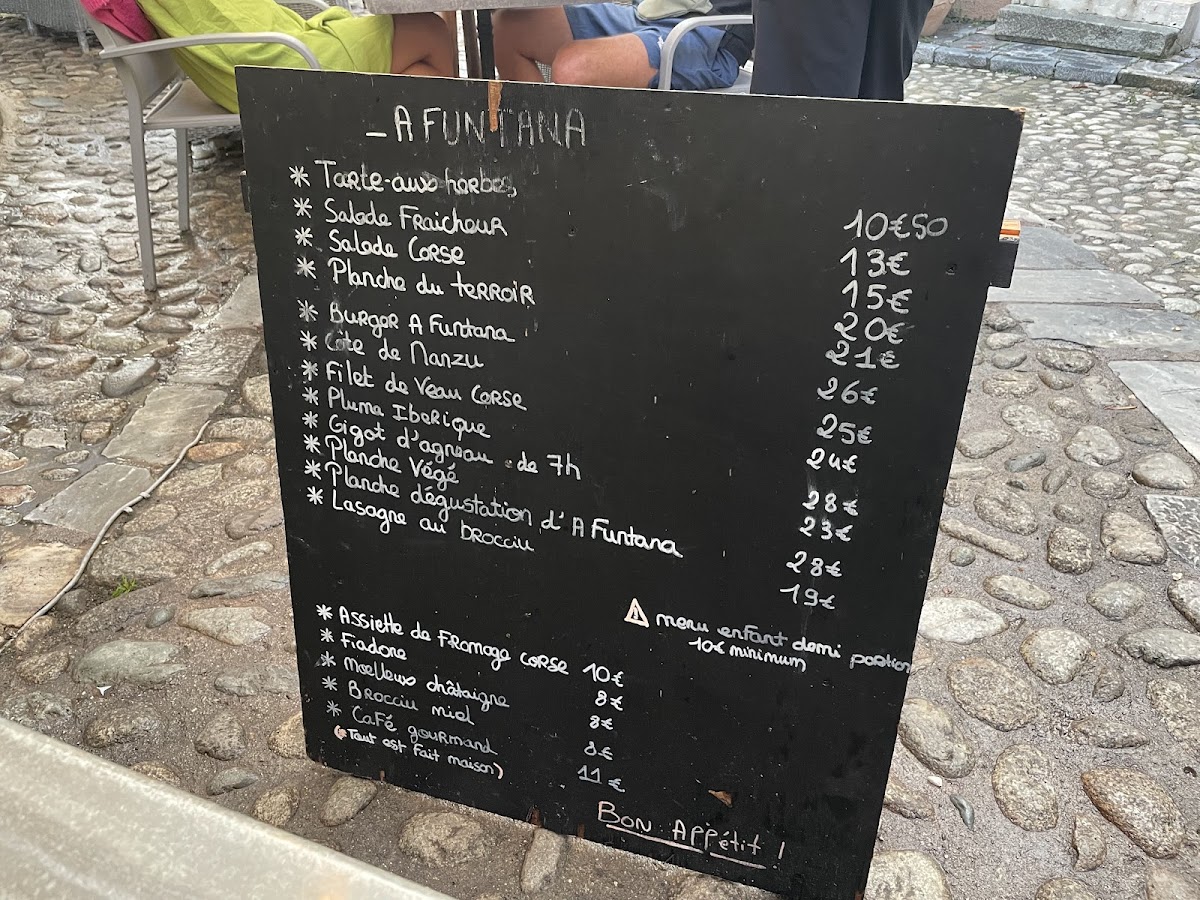 - A FUNTANA
* Tarte-aux herbes, 10€50
* Salade Fraicheur 13€
* Salade Corse 15€
* Planche du terroir 20€
* Burger A Funtana 21€
* Cote de Manzu 26€
* Filet de Veau Corse 25€
* Pluma Iberique 24€
* Gigot d'agneau de 7h 28€
* Planche Végé 23€
* Planche dégustation d'A Funtana 28€
* Lasagne au brocciu 19€
⚠ menu enfant demi portion
10€ minimum
* Assiette de Fromage corse 10€
* Fiadone 8€
* moelleux châtaigne 8€
* Brocciu miel 8€
* Café gourmand 11€
(*Tout est fait maison)
Bon Appétit !